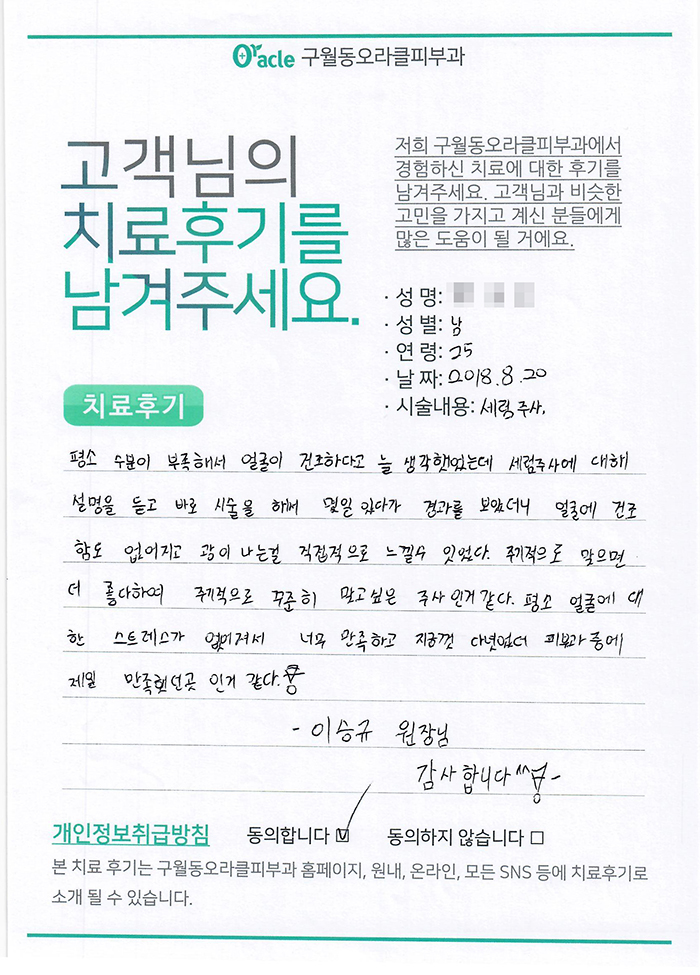 Oracle 구월동오라클피부과
고객님의
치료후기를
남겨주세요.
저희 구월동오라클피부과에서
경험하신 치료에 대한 후기를
남겨주세요. 고객님과 비슷한
고민을 가지고 계신 분들에게
많은 도움이 될 거에요.
· 성 명:
· 성 별: 남
· 연 령: 25
· 날 짜: 2018.8.20
· 시술내용: 세럼주사.
치료후기
평소 수분이 부족해서 얼굴이 건조하다고 늘 생각했었는데 세럼주사에 대해
설명을 듣고 바로 시술을 하여 몇일 있다가 결과를 보았더니 얼굴에 건조
함도 없어지고 광이 나는걸 직접적으로 느낄수 잇었다. 주기적으로 맞으면
더 좋다하여 주기적으로 꾸준히 맞고싶은 주사인거같다. 평소 얼굴에 대
한 스트레스가 없어져서 너무 만족하고 지금껏 다녔었더 피부과중에
제일 만족했던곳 인거 같다.
- 이승규 원장님
감사합니다^^ -
개인정보취급방침 동의합니다 동의하지 않습니다
본 치료 후기는 구월동오라클피부과 홈페이지, 원내, 온라인, 모든 SNS 등에 치료후기로
소개 될 수 있습니다.